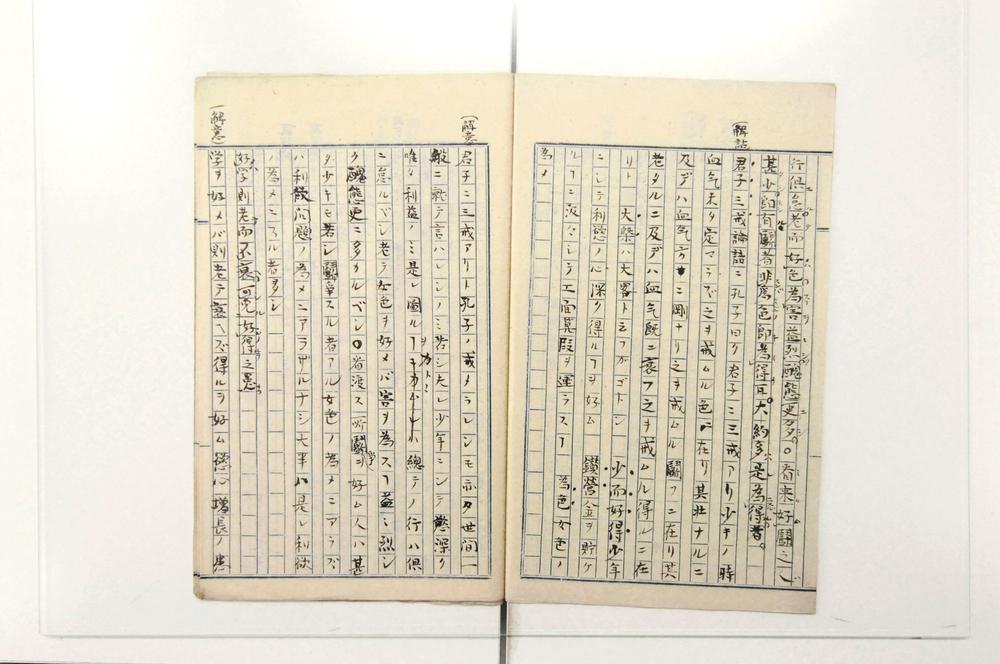 行倶怠老而好色為害益烈醜態更多。看来好闘之人
甚少。即有闘者非為色即為得耳。大約多是為得者。
(解詁)
君子三戒論語ニ孔子曰ク君子ニ三戒アリ少キノ時
血気未タ定マラズ之ヲ戒ムル色ニ在リ其壮ナルニ
及デハ血気方ニ剛ナリ之ヲ戒ムル闘フニ在リ其
老タルニ及デハ血気既ニ衰フ之ヲ戒ムル得ルニ在
リト 大槩ハ大畧トシフガゴトシ 少而好得少年
ニシテ利慾ノ心深ク得ルヿヲ好ム 鑽営金ヲ貯ケ
ルヿニ汲々シテ工面算段ヲ運ラスヿ 為色女色ノ
為メ
(解意)
君子ニ三戒アリト孔子ノ戒メラレシモ亦タ世間一
般ニ就テ言ハレシノミ若シ夫レ少年ニシテ慾深ク
唯タ利益ノミ是レ圖ルヿヲカムレハ總テノ行ハ倶
ニ怠ルベシ老テ女色ヲ好メバ害ヲ為スヿ益ミ烈シ
ク醜態更ニ多カルベシ○看渡ス所闘爭ヲ好ム人ハ甚
タ少キモ若シ闘爭スル者アル女色ノ為メニアラズ
ハ利慾問題ノ為メニアラザルナシ大半ハ是レ利欲
ノ為メニスル者多シ
好学則老而不衰可免好得之患
(解意)
学ヲ好メバ則老テ衰ヘズ得ルヲ好ム慾心増長ノ患